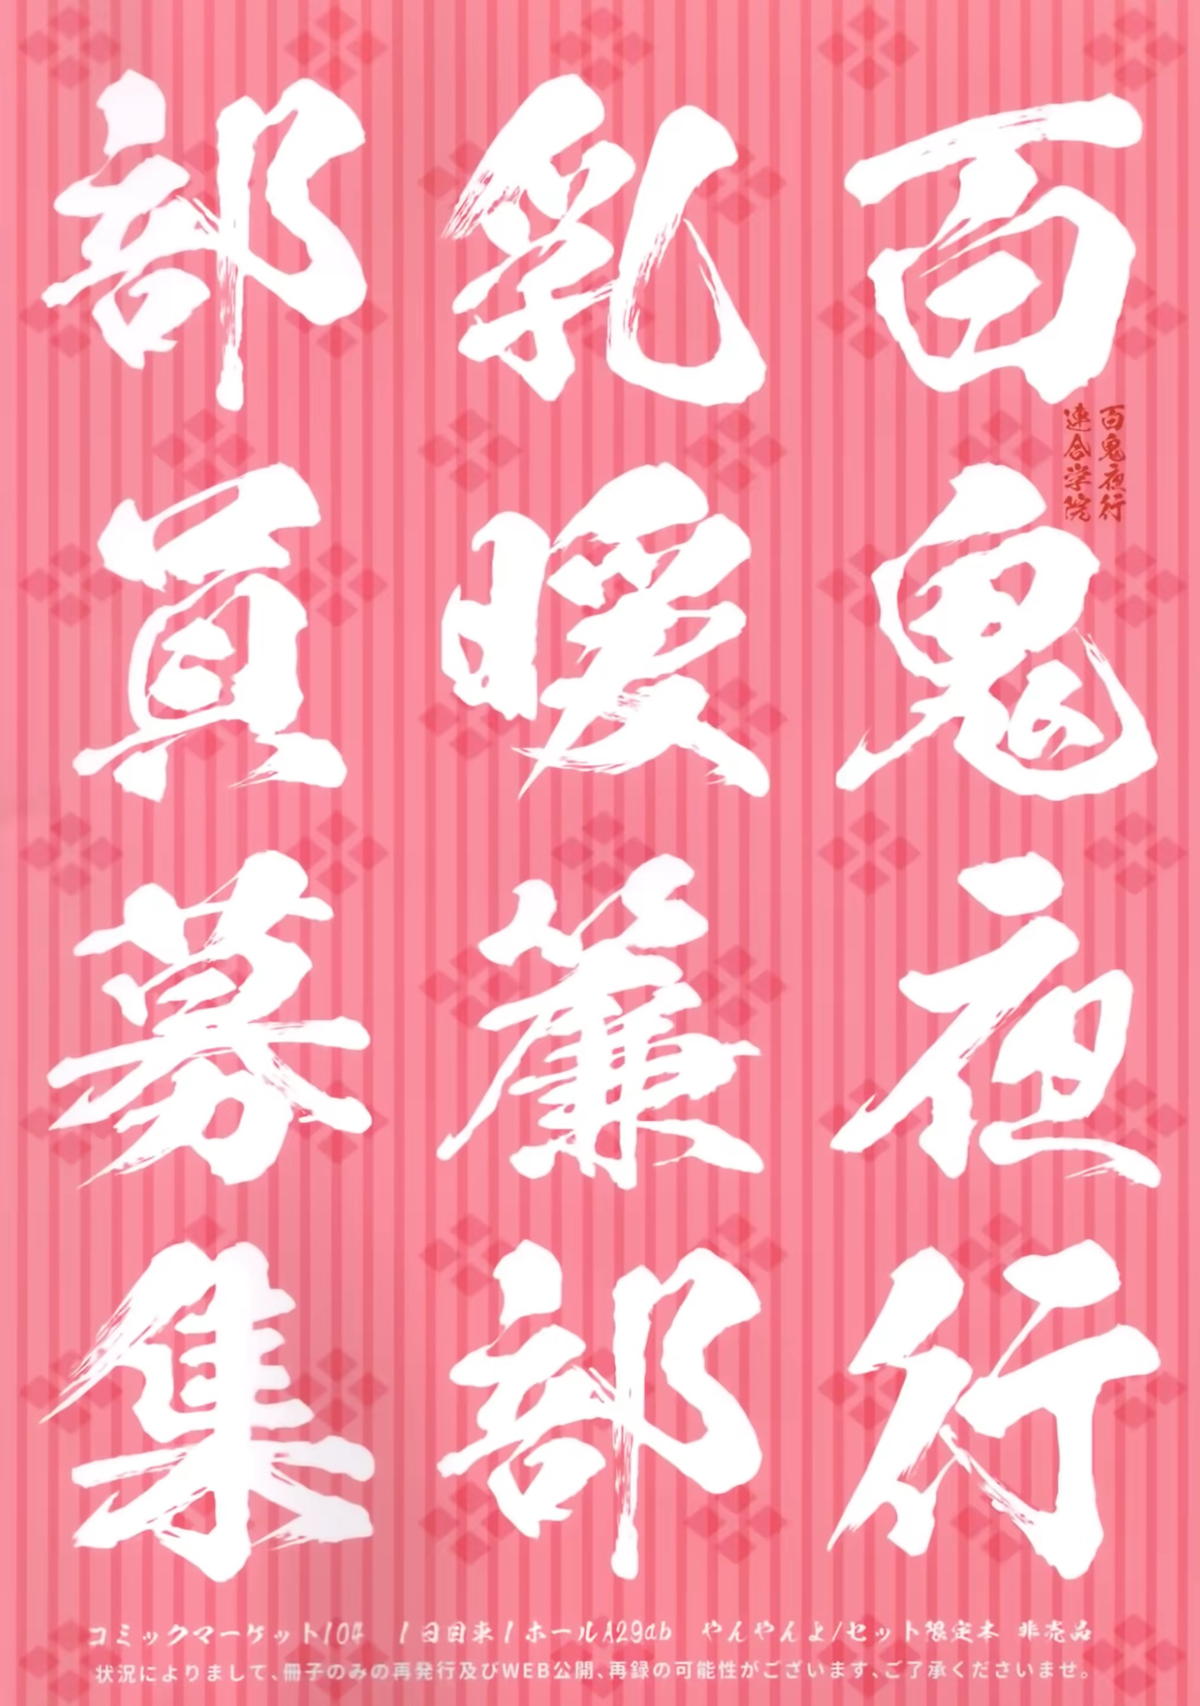 百鬼夜行
百鬼夜行
連合学院
乳暖簾部
部員募集
コミックマーケット104 1日目東1ホールA29ab やんやんよ/セット限定本 非売品
状況によりまして、冊子のみの再発行及びWEB公開、再録の可能性がございます、ご了承くださいませ。